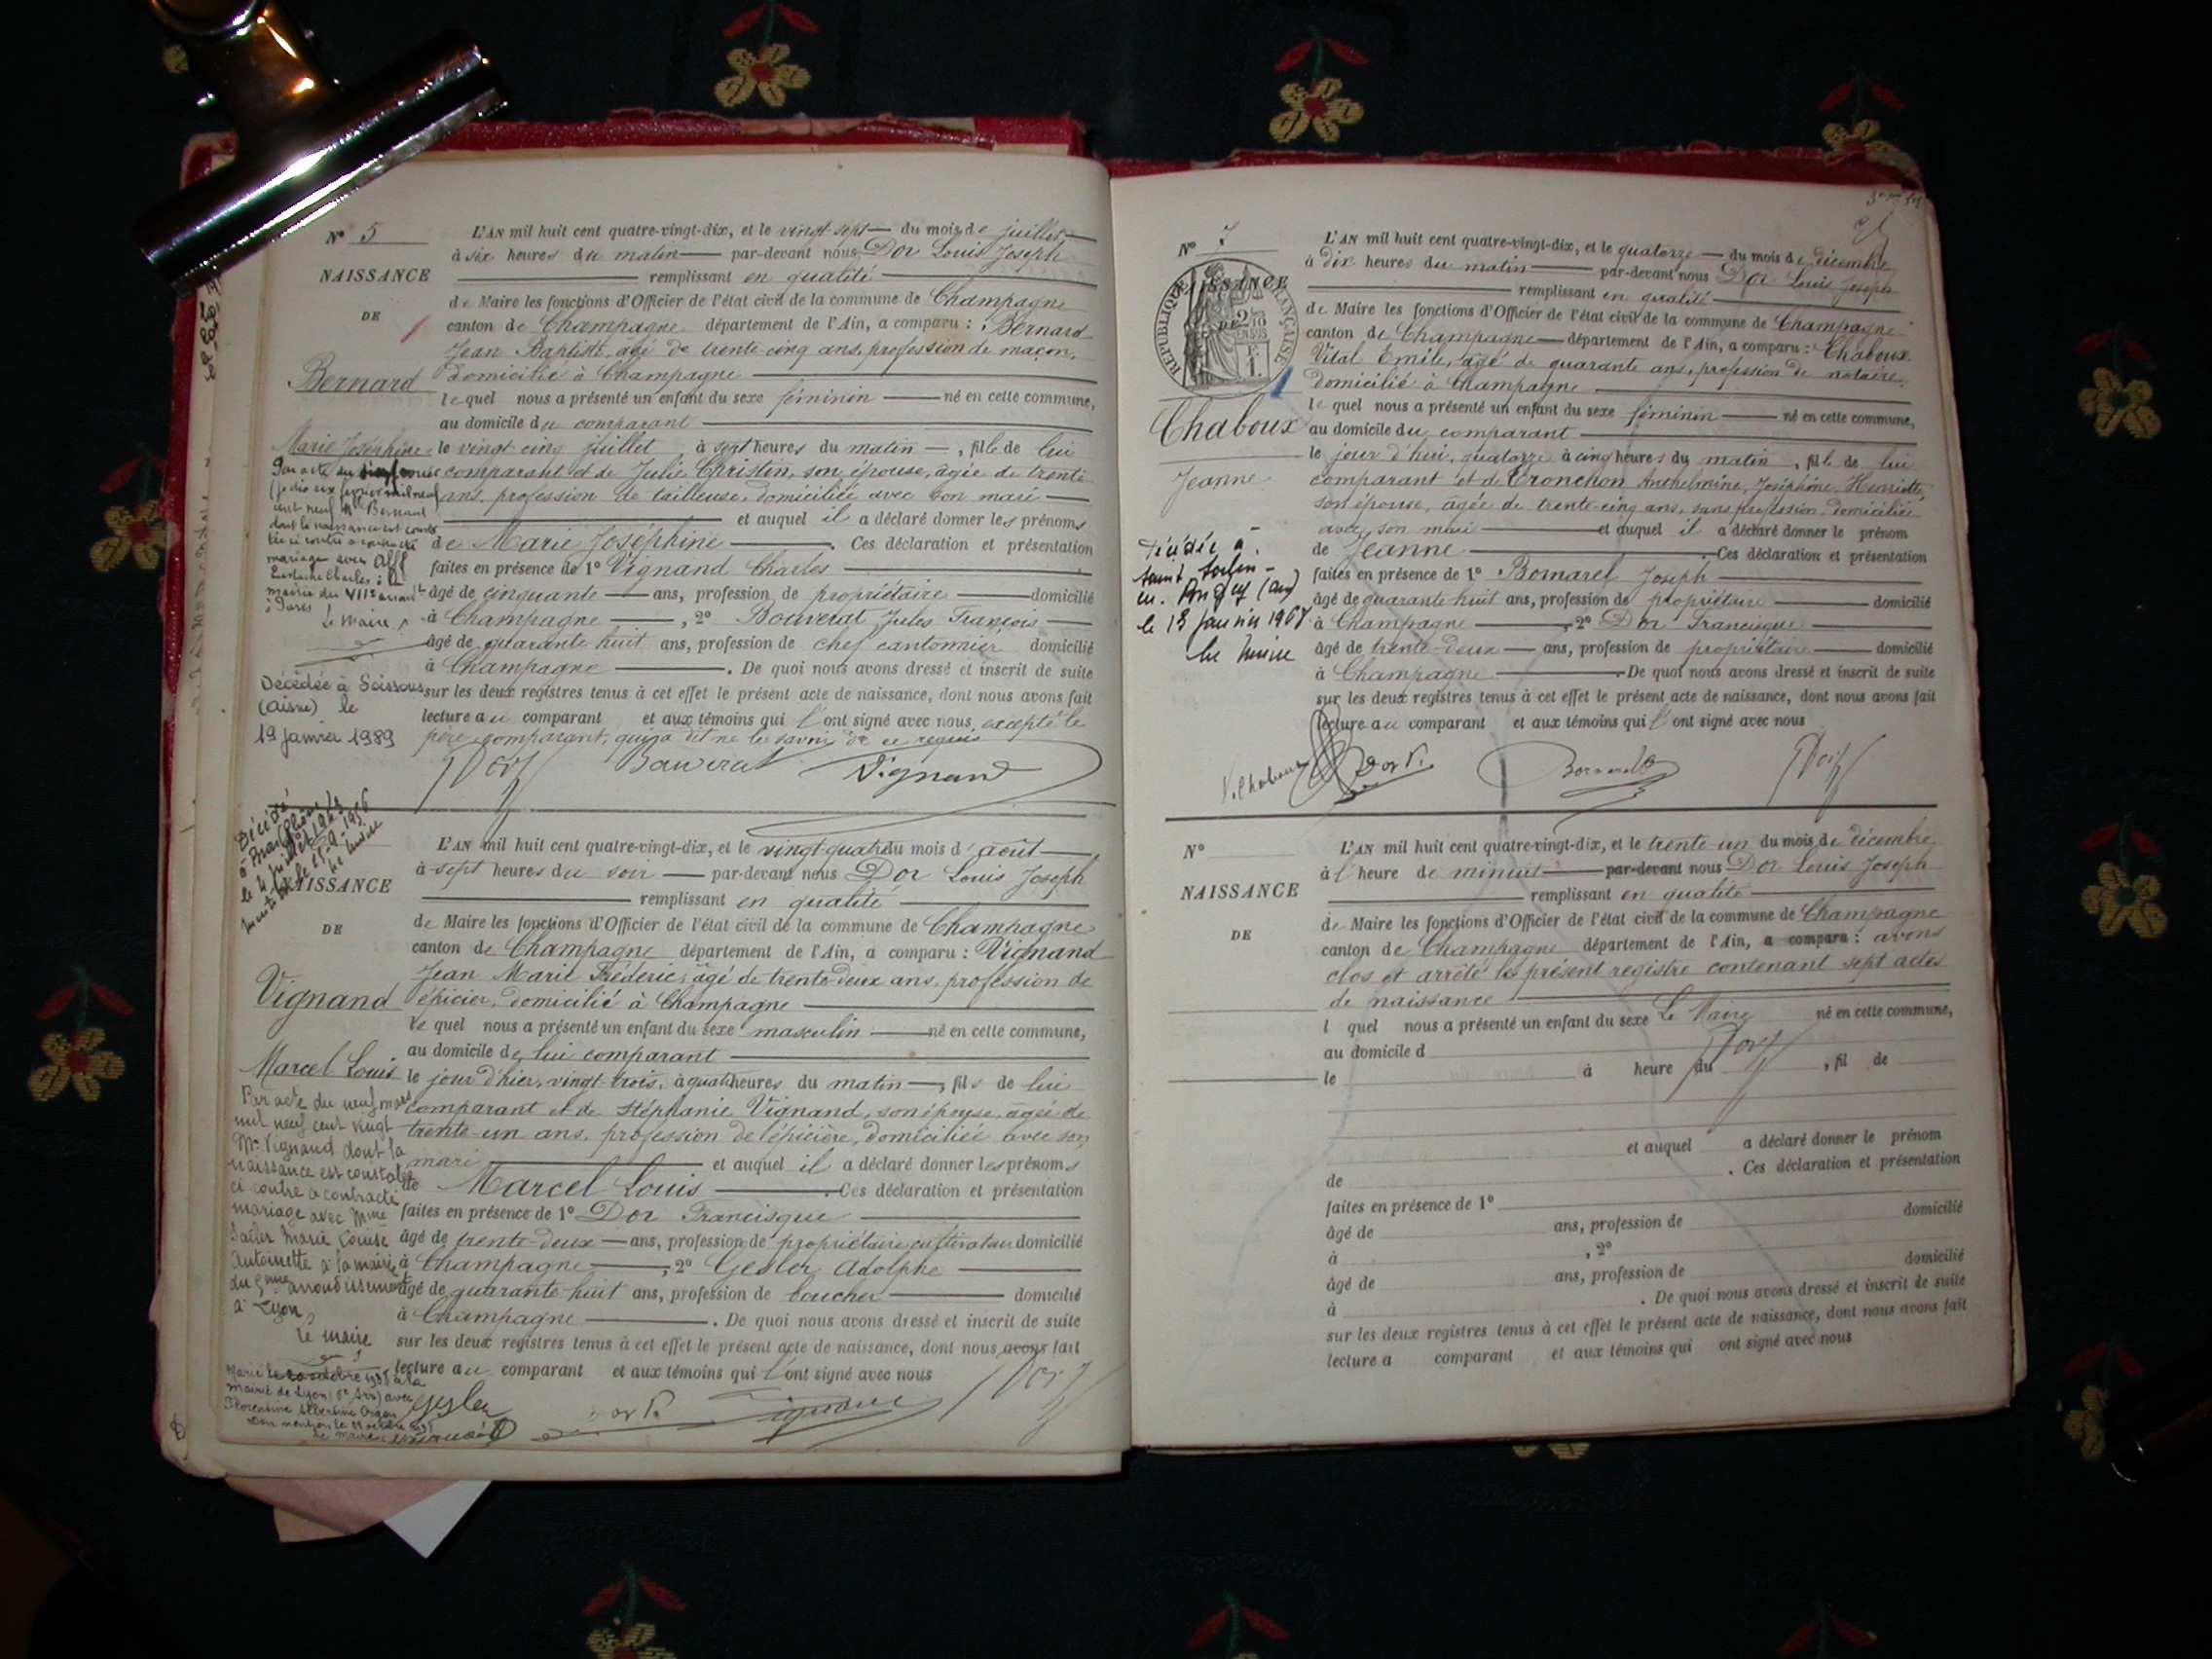 N° 5
NAISSANCE
DE
Bernard
Marie Joséphine
L'AN mil huit cent quatre-vingt-dix, et le vingt-sept du mois de juillet
à six heures du matin par-devant nous Dor Louis Joseph
remplissant en qualité
de Maire les fonctions d'Officier de l'état civil de la commune de Champagne
canton de Champagne département de l'Ain, a comparu : Bernard
Jean Baptiste, âgé de trente-cinq ans, profession de maçon,
domicilié à Champagne
lequel nous a présenté un enfant du sexe féminin né en cette commune,
au domicile du comparant
le vingt cinq juillet à sept heures du matin, fille de lui
comparant et de Julie Christin, son épouse, âgée de trente
ans, profession de tailleuse, domiciliée avec son mari
et auquel il a déclaré donner les prénoms
de Marie Joséphine. Ces déclaration et présentation
faites en présence de 1° Vignand Charles
âgé de cinquante ans, profession de propriétaire domicilié
à Champagne, 2° Bouverat Jules François
âgé de quarante huit ans, profession de chef cantonnier domicilié
à Champagne. De quoi nous avons dressé et inscrit de suite
sur les deux registres tenus à cet effet le présent acte de naissance, dont nous avons fait
lecture au comparant et aux témoins qui l'ont signé avec nous excepté le
père comparant, qui a dit ne le savoir de ce requis
Dor Bouverat Vignand
Par acte du
cent neuf Mlle Bernard
dont la naissance est
ci contre a contracté
mariage avec
Charles à la
mairie du VIIe arrondt
à Paris
Le Maire,
Décédée à Soissons
(Aisne) le
19 janvier 1989
Décédé
le maire
NAISSANCE
DE
Vignand
Marcel Louis
L'AN mil huit cent quatre-vingt-dix, et le vingt-quatre du mois d'août
à sept heures du soir par-devant nous Dor Louis Joseph
remplissant en qualité
de Maire les fonctions d'Officier de l'état civil de la commune de Champagne
canton de Champagne département de l'Ain, a comparu : Vignand
Jean Marie Frédéric, âgé de trente-deux ans, profession de
épicier, domicilié à Champagne
lequel nous a présenté un enfant du sexe masculin né en cette commune,
au domicile de lui comparant
le jour d'hier, vingt-trois, à quatre heures du matin, fils de lui
comparant et de Stéphanie Vignand, son épouse, âgée de
trente-un ans, profession de épicière, domiciliée avec son
mari et auquel il a déclaré donner les prénoms
de Marcel Louis. Ces déclaration et présentation
faites en présence de 1° Dor Francisque
âgé de trente-deux ans, profession de propriétaire cultivateur domicilié
à Champagne, 2° Gesler Adolphe
âgé de quarante-huit ans, profession de boucher domicilié
à Champagne. De quoi nous avons dressé et inscrit de suite
sur les deux registres tenus à cet effet le présent acte de naissance, dont nous avons fait
lecture au comparant et aux témoins qui l'ont signé avec nous
Gesler Dor F. Vignand Dor
Par acte du neuf mars
mil neuf cent vingt
Mr Vignand dont la
naissance est constatée
ci contre a contracté
mariage avec Mme
Marie Louise
Antoinette à la mairie
du arrondissement
à Lyon,
le maire
Marié le 20 octobre à la
mairie de Lyon avec
Florentine Albertine
Le maire
N° 7
NAISSANCE
DE
RÉPUBLIQUE FRANÇAISE
Chaboux
Jeanne
L'AN mil huit cent quatre-vingt-dix, et le quatorze du mois de décembre
à dix heures du matin par-devant nous Dor Louis Joseph
remplissant en qualité
de Maire les fonctions d'Officier de l'état civil de la commune de Champagne
canton de Champagne département de l'Ain, a comparu : Chaboux
Vital Émile, âgé de quarante ans, profession de notaire,
domicilié à Champagne
lequel nous a présenté un enfant du sexe féminin né en cette commune,
au domicile du comparant
le jour d'hui, quatorze à cinq heures du matin, fille de lui
comparant et de Tronchon Anthelmine, Joséphine, Henriette,
son épouse, âgée de trente-cinq ans, sans profession, domiciliée
avec son mari et auquel il a déclaré donner le prénom
de Jeanne. Ces déclaration et présentation
faites en présence de 1° Bornarel Joseph
âgé de quarante-huit ans, profession de propriétaire domicilié
à Champagne, 2° Dor Francisque
âgé de trente-deux ans, profession de propriétaire domicilié
à Champagne. De quoi nous avons dressé et inscrit de suite
sur les deux registres tenus à cet effet le présent acte de naissance, dont nous avons fait
lecture au comparant et aux témoins qui l'ont signé avec nous
V. Chaboux Dor F. Bornarel Dor
Décédée à
Saint Sorlin
en Bugey (Ain)
le 13 janvier 1967
le Maire
N°
NAISSANCE
DE
L'AN mil huit cent quatre-vingt-dix, et le trente-un du mois de décembre
à l'heure de minuit par-devant nous Dor Louis Joseph
remplissant en qualité
de Maire les fonctions d'Officier de l'état civil de la commune de Champagne
canton de Champagne département de l'Ain, a comparu : avons
clos et arrêté le présent registre contenant sept actes
de naissance
l quel nous a présenté un enfant du sexe Le Maire né en cette commune,
au domicile d Dor
le à heure du , fil de
et auquel a déclaré donner le prénom
de . Ces déclaration et présentation
faites en présence de 1°
âgé de ans, profession de domicilié
à , 2°
âgé de ans, profession de domicilié
à . De quoi nous avons dressé et inscrit de suite
sur les deux registres tenus à cet effet le présent acte de naissance, dont nous avons fait
lecture a comparant et aux témoins qui ont signé avec nous